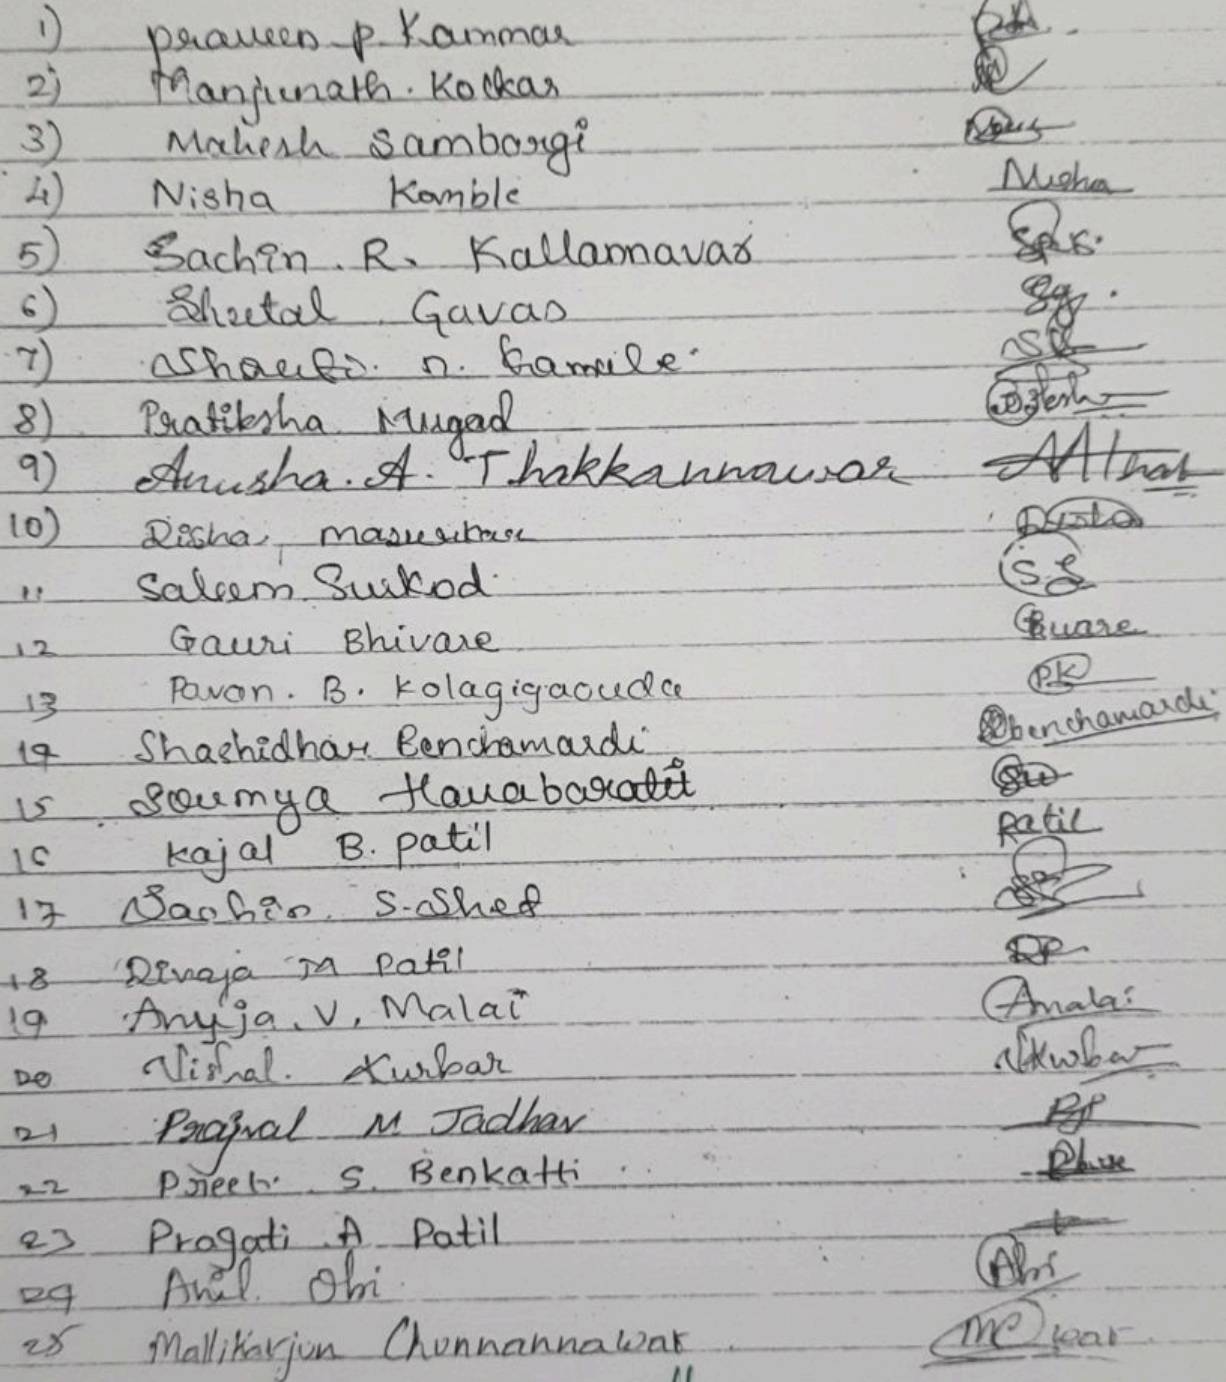 1) Praveen P Kammar
2) Manjunath. Kolkar
3) Mahesh Sambargi
4) Nisha Kamble Nisha
5) Sachin. R. Kallannavar S.R.K.
6) Sheetal Gavas Sg.
7) n.
8) Pratiksha Mugad
9) Anusha. A. Thakkannawar
10) Disha Disha
11 Saleem Surkod S.S
12 Gauri Bhivare
13 Pavan. B. Kolagigaouda PK
14 Shashidhar Benchamardi Sbenchamardi
15 Soumya
16 Kajal B. Patil Patil
17 Sachin. S. Shet
18 M Patil DP
19 V. Malai Amalai
20 Vishal. Kurbar VKurbar
21 Prajval M Jadhav PJ
22 Preeti S. Benkatti
23 Pragati A Patil
24 Anil. Obi
25 Mallikarjun Chunnannawar